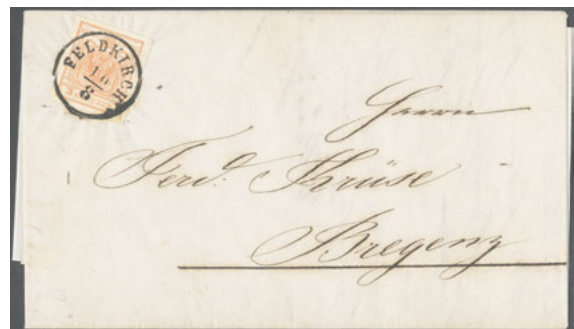 FELDKIRCH
10
8
Herrn
Ferd. Krüse
Bregenz